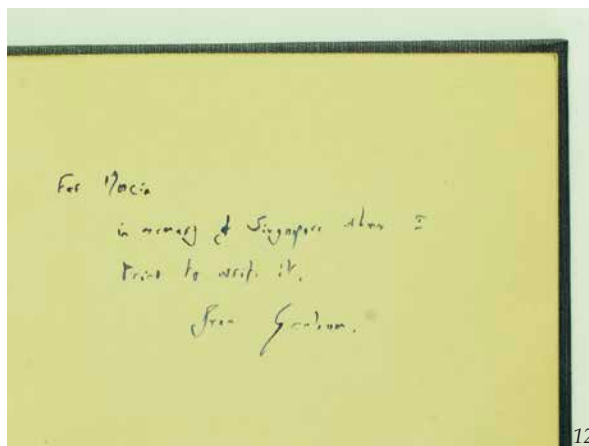 For Marcia
in memory of Singapore when I
tried to write it.
from Graham.
12